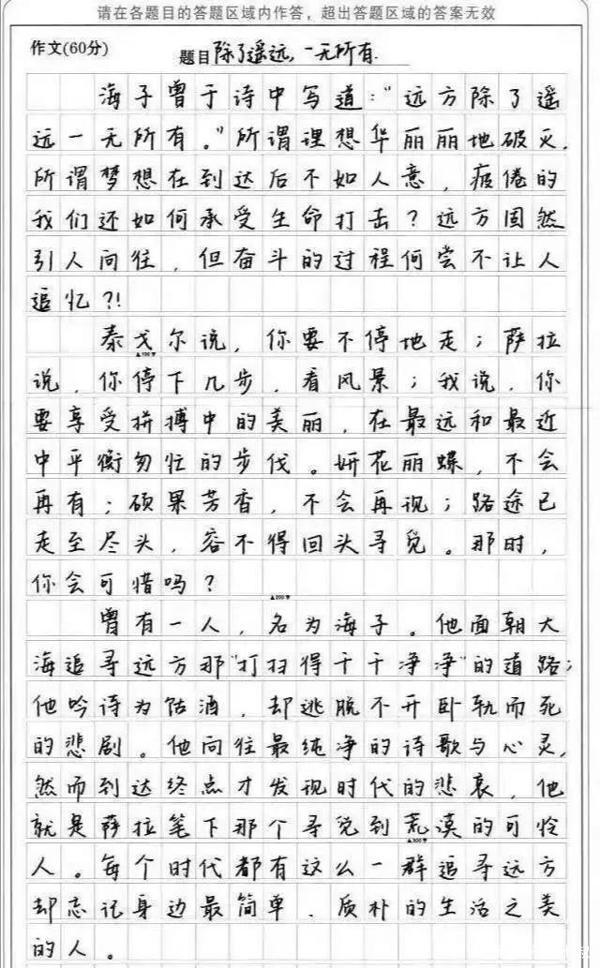 请在各题目的答题区域内作答，超出答题区域的答案无效
作文(60分) 题目 除了遥远，一无所有.
海子曾于诗中写道："远方除了遥
远一无所有。"所谓理想华丽丽地破灭，
所谓梦想在到达后不如人意，疲倦的
我们还如何承受生命打击？远方固然
引人向往，但奋斗的过程何尝不让人
追忆?!
泰戈尔说，你要不停地走；萨拉
说，你停下几步，看风景；我说，你
要享受拼搏中的美丽，在最远和最近
中平衡匆忙的步伐。妍花丽蝶，不会
再有；硕果芳香，不会再现；路途已
走至尽头，容不得回头寻觅。那时，
你会可惜吗？
曾有一人，名为海子。他面朝大
海追寻远方那"打扫得干干净净"的道路；
他吟诗为酤酒，却逃脱不开卧轨而死
的悲剧。他向往最纯净的诗歌与心灵，
然而到达终点才发现时代的悲哀，他
就是萨拉笔下那个寻觅到荒漠的可怜
人。每个时代都有这么一群追寻远方
却忘记身边最简单、质朴的生活之美
的人。